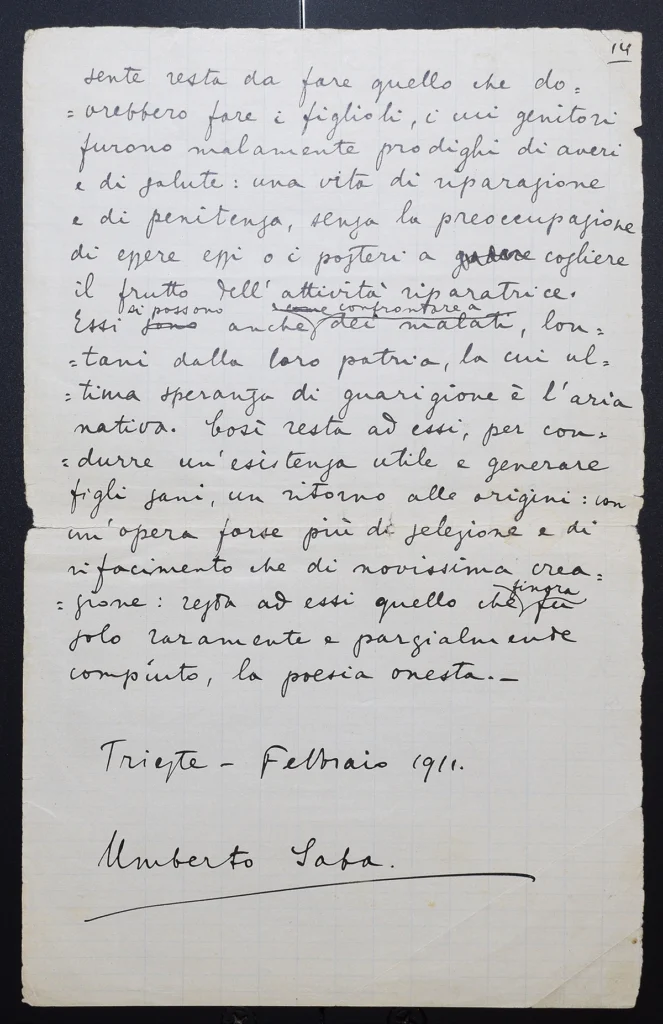 14
sente resta da fare quello che do=
=vrebbero fare i figlioli, i cui genitori
furono malamente prodighi di averi
e di salute: una vita di riparazione
e di penitenza, senza la preoccupazione
di essere essi o i posteri a godere cogliere
il frutto dell'attività riparatrice.
si possono come confrontare a
Essi sono anche dei malati, lon=
=tani dalla loro patria, la cui ul=
=tima speranza di guarigione è l'aria
nativa. Così resta ad essi, per con=
=durre un'esistenza utile e generare
figli sani, un ritorno alle origini: con
un'opera forse più di selezione e di
rifacimento che di novissima crea=
finora
=zione: resta ad essi quello che fu
solo raramente e parzialmente
compiuto, la poesia onesta.–
Trieste – Febbraio 1911.
Umberto Saba.